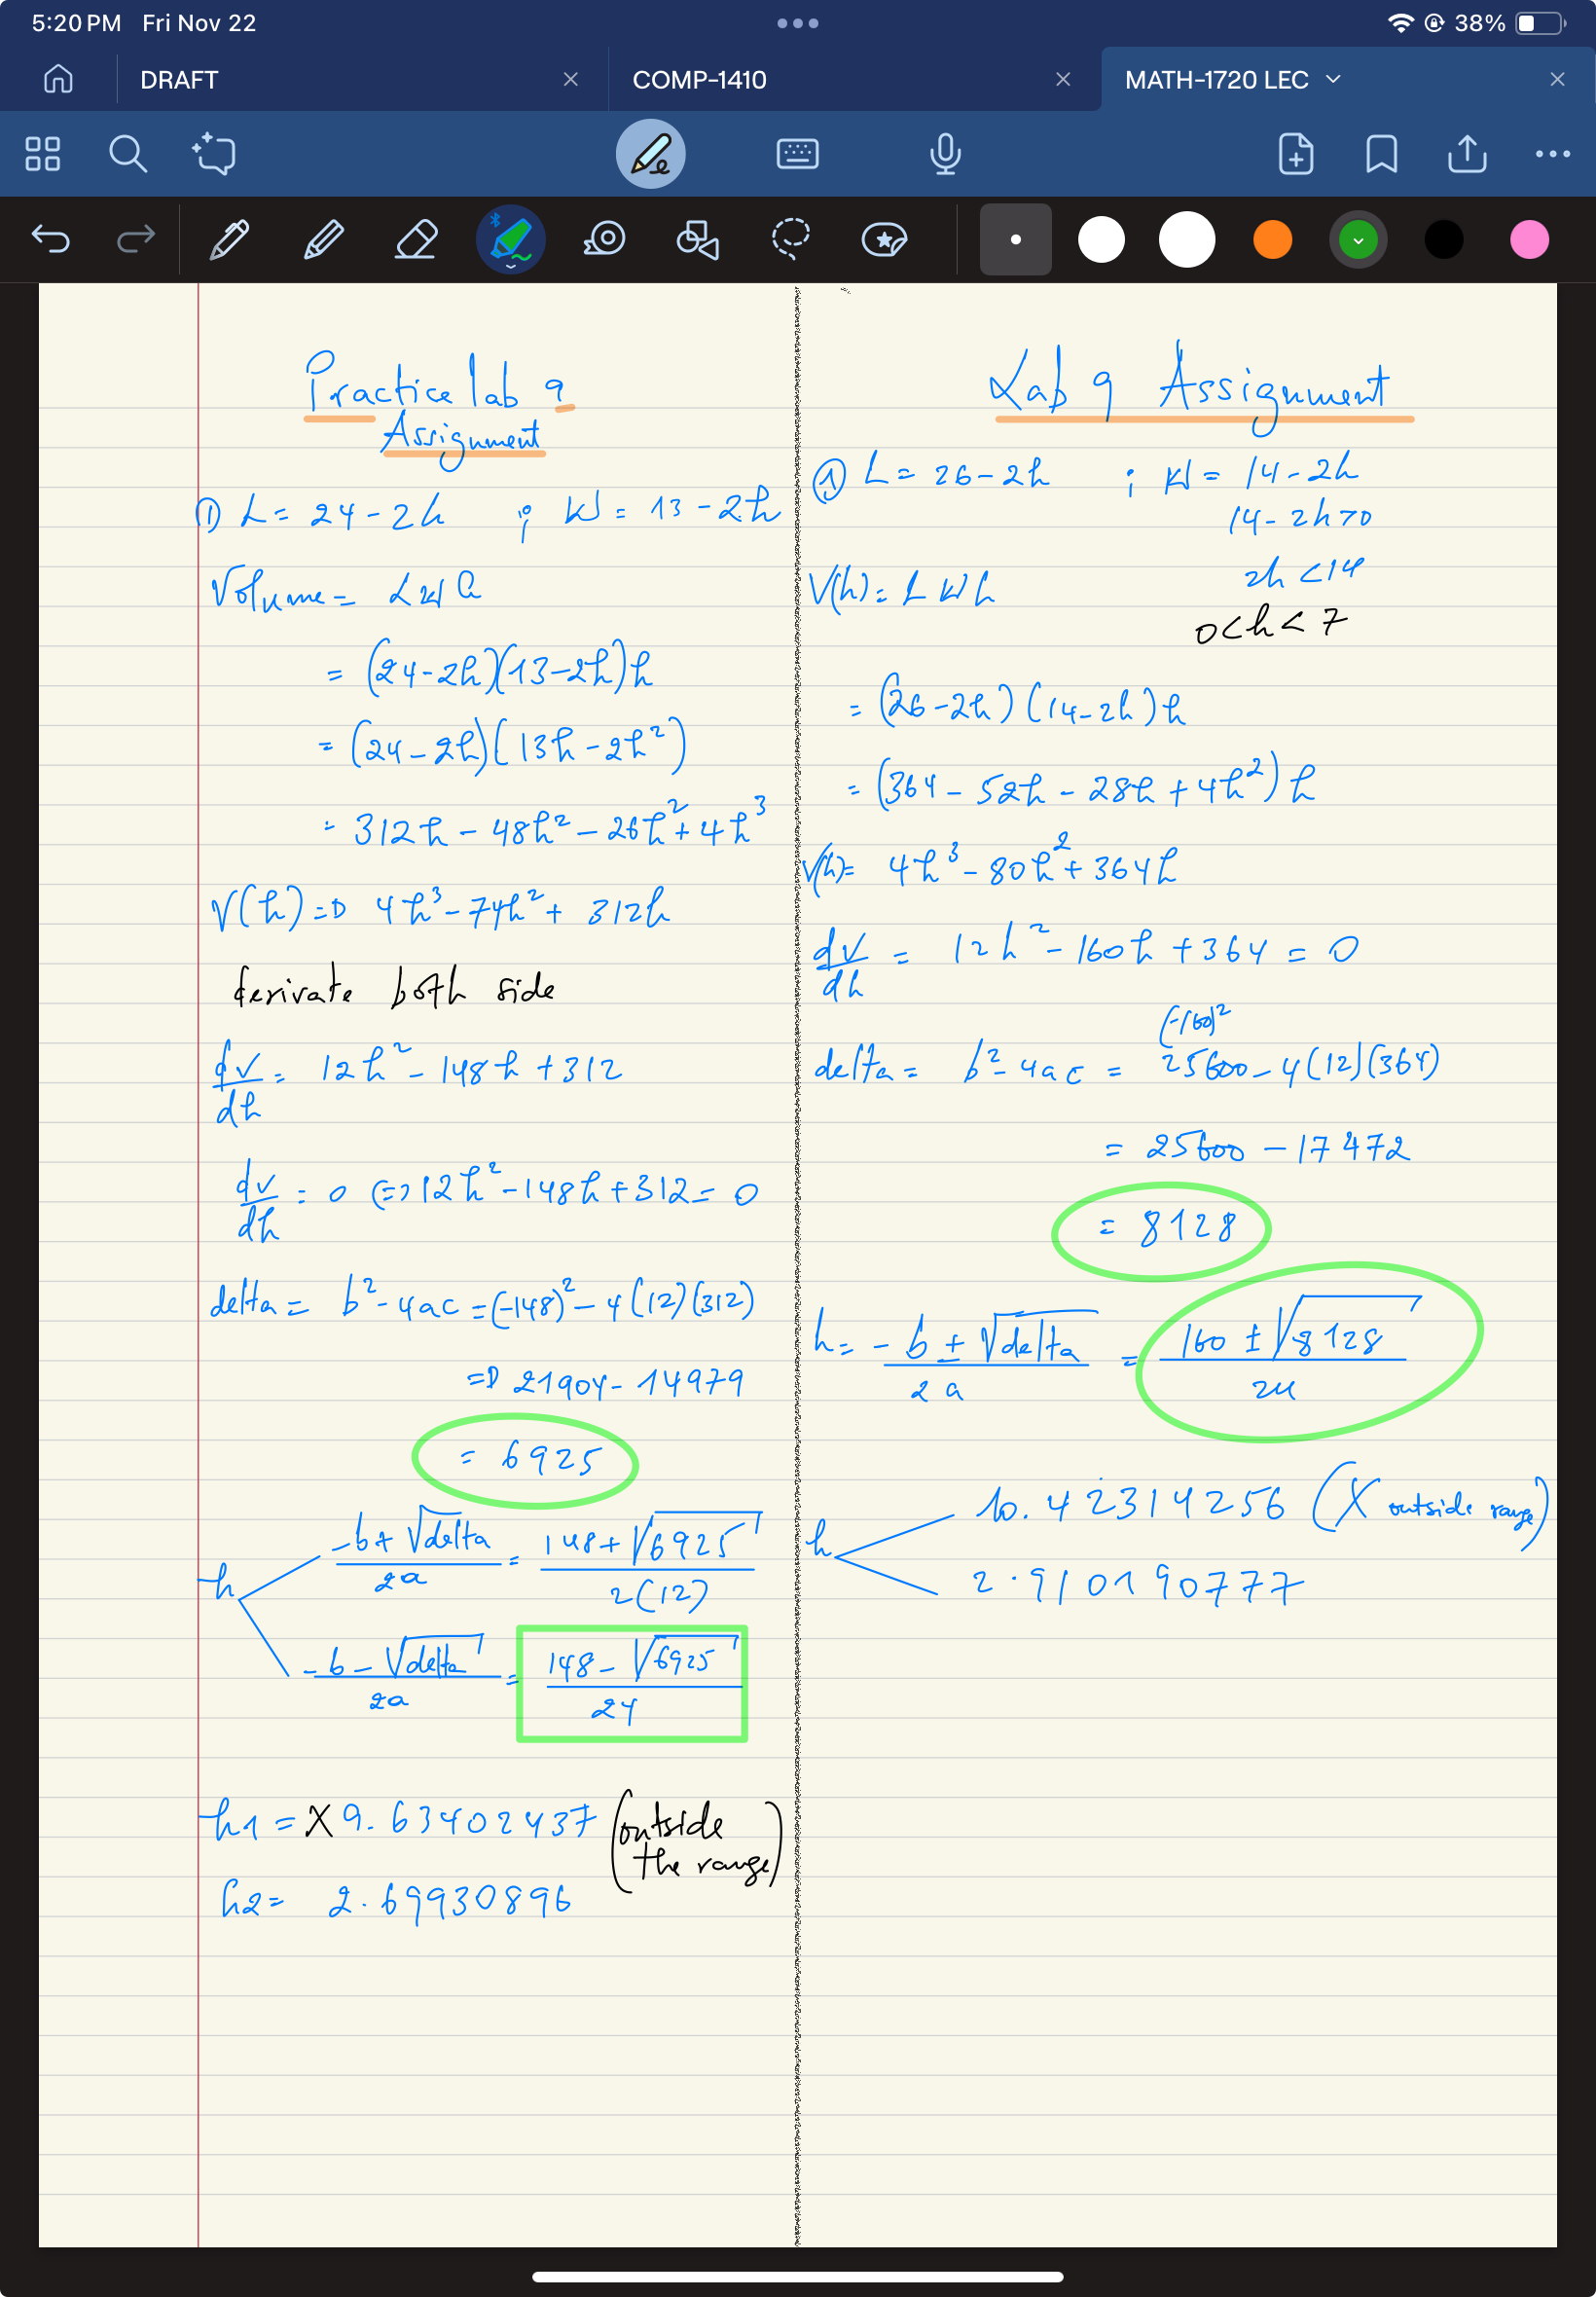 5:20 PM Fri Nov 22
38%
DRAFT
COMP-1410
MATH-1720 LEC
Practice lab 9
Assignment
① L = 24 - 2h ; W = 13 - 2h
Volume = L W h
= (24-2h)(13-2h)h
= (24-2h)(13h-2h²)
= 312h - 48h² - 26h² + 4h³
V(h) => 4h³ - 74h² + 312h
derivate both side
dv/dh = 12h² - 148h + 312
dv/dh = 0 <=> 12h² - 148h + 312 = 0
delta = b² - 4ac = (-148)² - 4(12)(312)
=> 21904 - 14979
= 6925
h
(-b + √delta)/2a = (148 + √6925)/2(12)
(-b - √delta)/2a = (148 - √6925)/24
h1 = X 9.63402437 (outside the range)
h2 = 2.69930896
Lab 9 Assignment
① L = 26 - 2h ; W = 14 - 2h
14 - 2h > 0
2h < 14
0 < h < 7
V(h) = L W h
= (26-2h)(14-2h)h
= (364 - 52h - 28h + 4h²)h
V(h) = 4h³ - 80h² + 364h
dv/dh = 12h² - 160h + 364 = 0
(-160)²
delta = b² - 4ac = 25600 - 4(12)(364)
= 25600 - 17472
= 8128
h = (-b ± √delta)/2a = (160 ± √8128)/24
h
10.42314256 (X outside range)
2.910190777